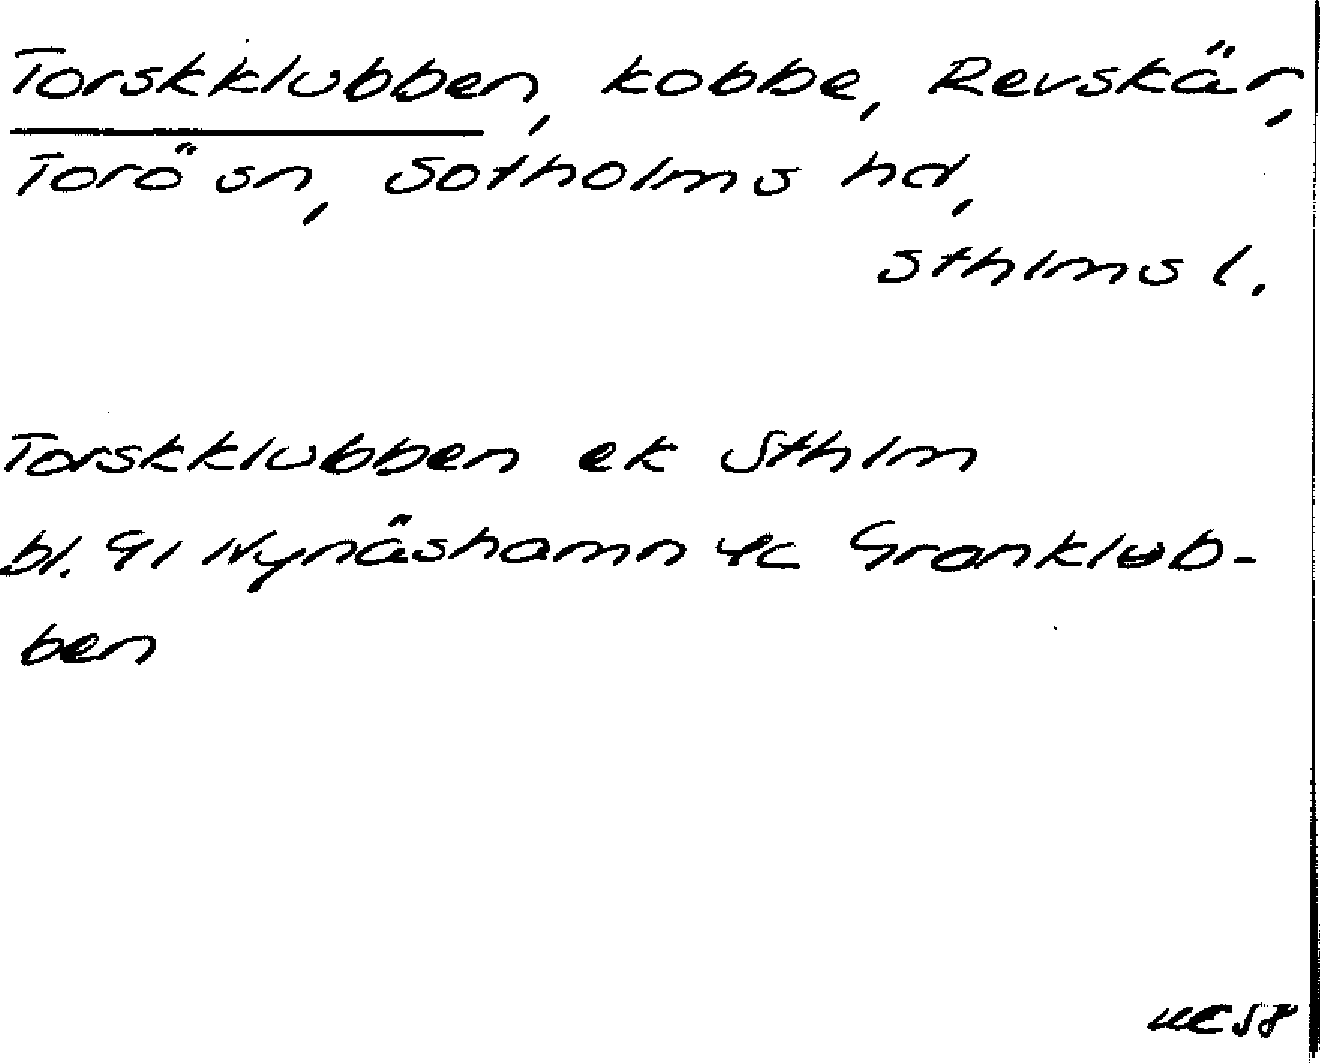 Torskklubben, kobbe, Revskär,
Torö sn, Sotholms hd,
Sthlms l.
Torskklubben ek Sthlm
bl. 91 Nynäshamn 4c Granklub-
ben